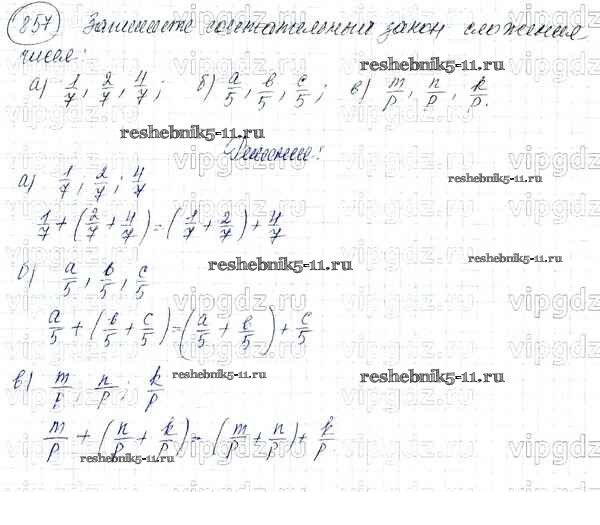 857 Запишите сочетательный закон сложения
чисел:
а) 1/7, 2/7, 4/7; б) a/5, b/5, c/5; в) m/p, n/p, k/p.
reshebnik5-11.ru
Решение:
а) 1/7, 2/7; 4/7
1/7 + (2/7 + 4/7) = (1/7 + 2/7) + 4/7
reshebnik5-11.ru
б) a/5, b/5, c/5
a/5 + (b/5 + c/5) = (a/5 + b/5) + c/5
в) m/p, n/p; k/p
m/p + (n/p + k/p) = (m/p + n/p) + k/p
reshebnik5-11.ru
reshebnik5-11.ru
reshebnik5-11.ru
reshebnik5-11.ru
reshebnik5-11.ru
vipgdz.ru